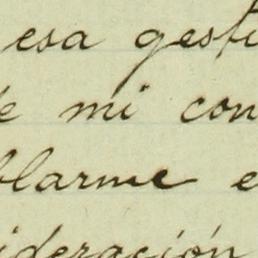 esa gesti
de mi con
blarme e
ideración